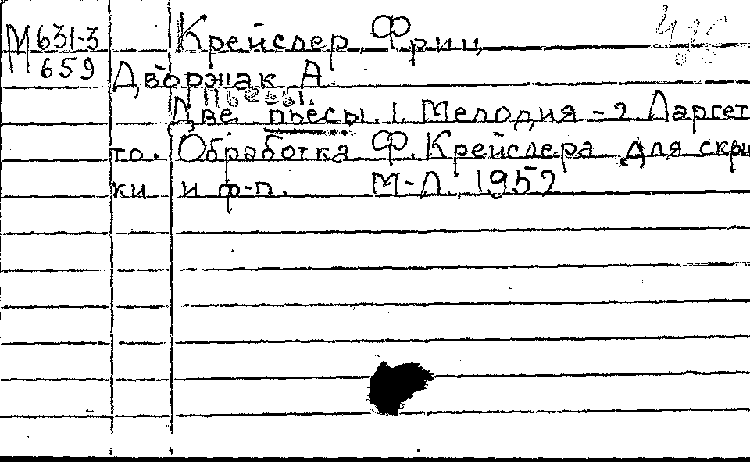 М 631-3 Крейслер Фриц 485
М 659 Дворжак А.
Пьесы.
Две пьесы. 1. Мелодия - 2 Ларгет
то. Обработка Ф. Крейслера для скри
ки и ф-п. М-Л. 1952